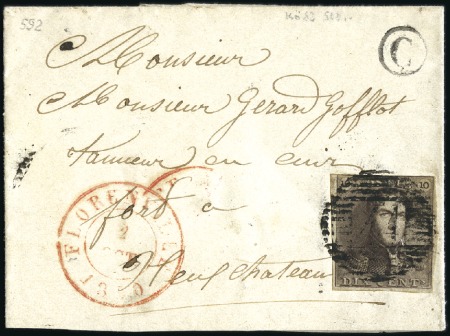 592
C
Monsieur
Monsieur Gerard Gofflot
tanneur en cuir
fort a
Neufchateau
FLORENVILLE
10
DIX CENTS